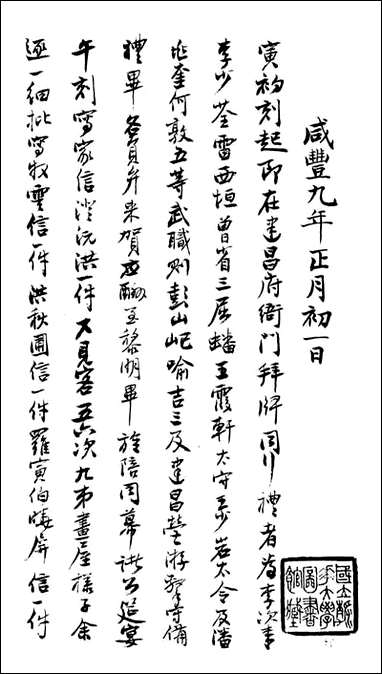 咸豐九年正月初一日
寅初刻起即在建昌府衙門拜牌同行禮者為李次青
李少荃雷西垣曾省三屈蟠王霞軒太守王少岩太令及潘
兆奎何敦五等武職則彭山屺喻吉三及建昌營游擊守備
禮畢各員弁來賀應酬至黎明畢旋陪同幕諸公筵宴
午刻寫家信澄沅洪一件又見客五六次九弟畫屋樣子余
逐一細批寫牧雲信一件洪秋圃信一件羅寅伯曉屏信一件
國立
大學
圖書
館藏